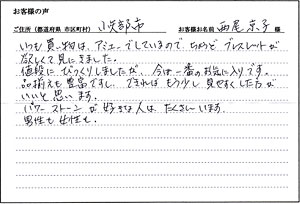 お客様の声
ご住所（都道府県 市区町村） 小矢部市 お客様お名前 西尾京子 様
いつも買い物は、アミューでしているので、ちょうどブレスレットが
欲しくて見にきました。
値段にびっくりしましたが、今は一番のお気に入りです。
品揃えも豊富ですし、できればもう少し見やすくした方が
いいと思います。
パワーストーンが好きな人は、たくさんいます。
男性も女性も。